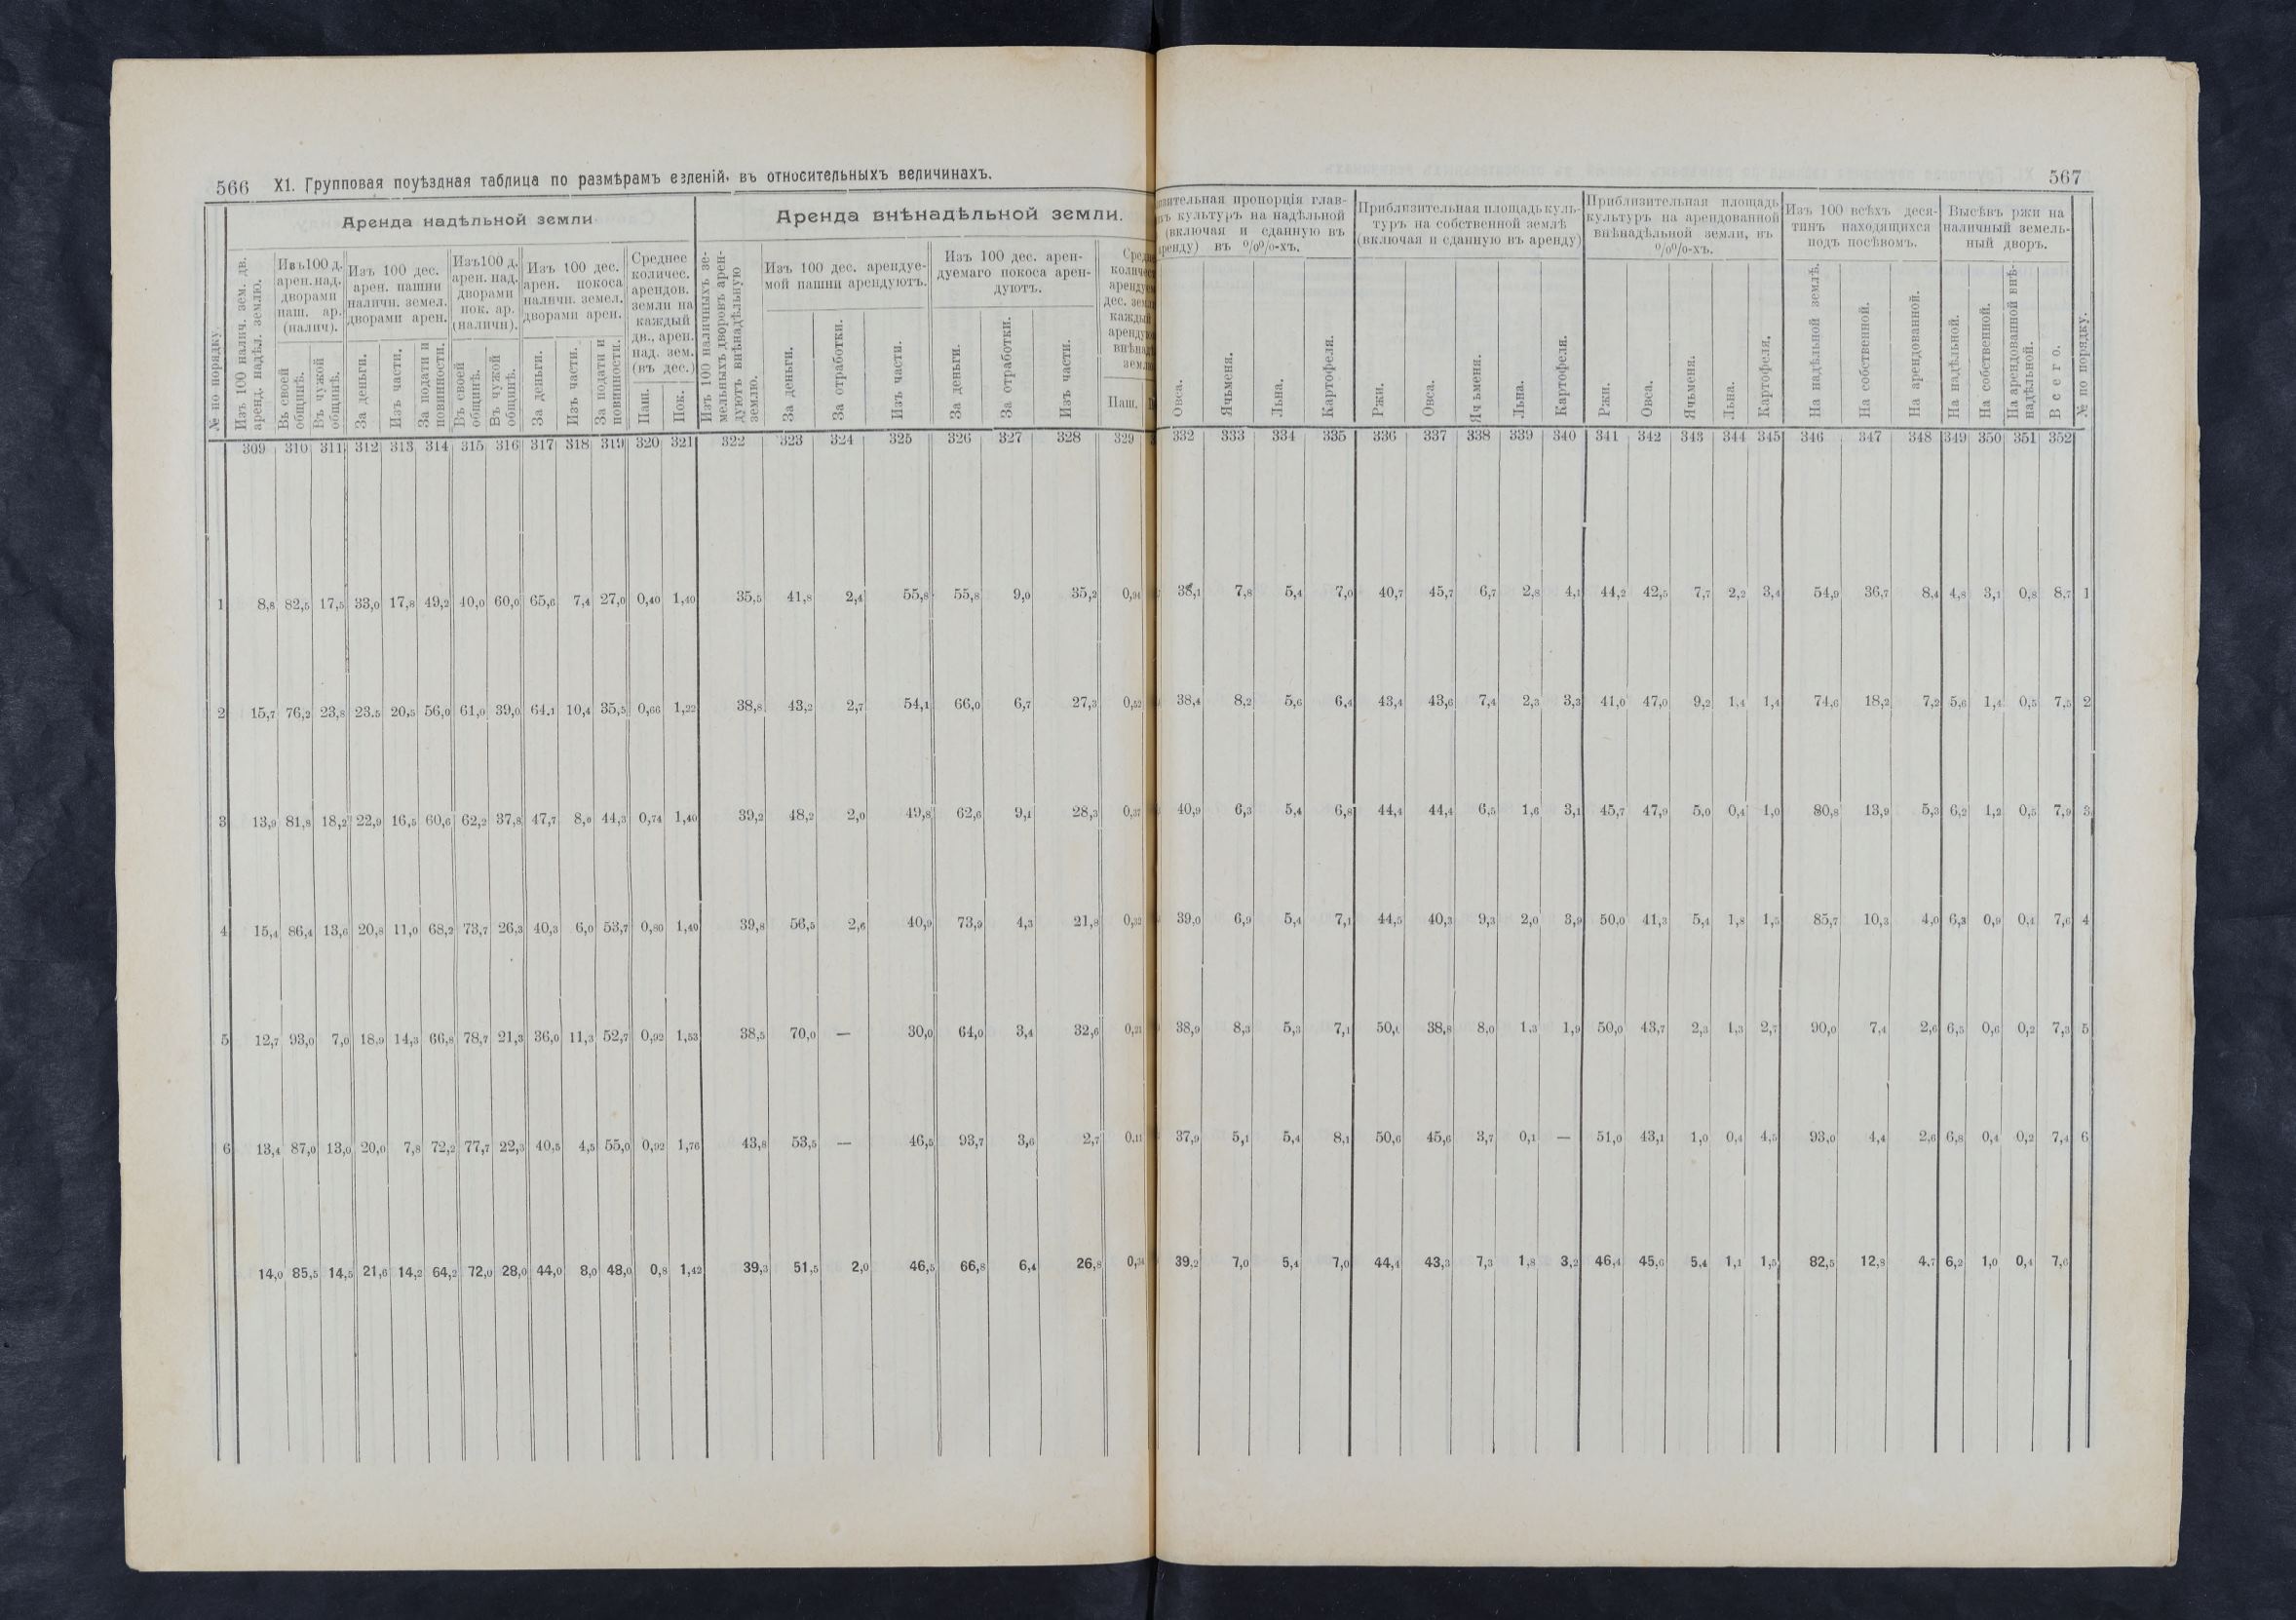 566 XI. Групповая поуѣздная таблица по размѣрамъ
въ относительныхъ величинахъ.
567
Аренда надѣльной земли
Аренда внѣнадѣльной земли.
№ по порядку.
Изъ 100 налич. зем. дв. аренд. надѣл. землю.
Изъ 100 д. арен. над. дворами паш. ар. (налич).
Въ своей общинѣ.
Въ чужой общинѣ.
Изъ 100 дес. арен. пашни наличн. земел. дворами арен.
За деньги.
Изъ части.
За подати и повинности.
Изъ 100 д. арен. над. дворами пок. ар. (наличн).
Въ своей общинѣ.
Въ чужой общинѣ.
Изъ 100 дес. арен. покоса наличн. земел. дворами арен.
За деньги.
Изъ части.
За подати и повинности.
Среднее количес. арендов. земли на каждый дв., арен. над. зем. (въ дес.)
Паш.
Пок.
Изъ 100 наличныхъ земельныхъ дворовъ арендуютъ внѣнадѣльную землю.
Изъ 100 дес. арендуемой пашни арендуютъ.
За деньги.
За отработки.
Изъ части.
Изъ 100 дес. арендуемаго покоса арендуютъ.
За деньги.
За отработки.
Изъ части.
Паш.
культуръ на надѣльной (включая и сданную въ аренду) въ %%-хъ.
Овса.
Ячьменя.
Льна.
Картофели.
Приблизительная площадь культуръ на собственной землѣ (включая и сданную въ аренду)
Ржи.
Овса.
Ячьменя.
Льна.
Картофели.
Приблизительная площадь культуръ на арендованной внѣнадѣльной земли, въ %%-хъ.
Ржи.
Овса.
Ячьменя.
Льна.
Картофеля.
Изъ 100 всѣхъ десятинъ находящихся подъ посѣвомъ.
На надѣльной землѣ.
На собственной.
На арендованной.
Высѣвъ ржи на наличный земельный дворъ.
На надѣльной.
На собственной.
На арендованной внѣнадѣльной.
Всего.
№ по порядку.
309 310 311 312 313 314 315 316 317 318 319 320 321 322 323 324 325 326 327 328 329
332 333 334 335 336 337 338 339 340 341 342 343 344 345 346 347 348 349 350 351 352
1 8,8 82,5 17,5 33,0 17,8 49,2 40,0 60,0 65,6 7,4 27,0 0,40 1,40 35,5 41,8 2,4 55,8 55,8 9,0 35,2 0,94
38,1 7,8 5,4 7,0 40,7 45,7 6,7 2,8 4,1 44,2 42,5 7,7 2,2 3,4 54,9 36,7 8,4 4,8 3,1 0,8 8,7 1
2 15,7 76,2 23,8 23.5 20,5 56,0 61,0 39,0 64.1 10,4 35,5 0,66 1,22 38,8 43,2 2,7 54,1 66,0 6,7 27,3 0,52
38,4 8,2 5,6 6,4 43,4 43,6 7,4 2,3 3,3 41,0 47,0 9,2 1,4 1,4 74,6 18,2 7,2 5,6 1,4 0,5 7,5 2
3 13,9 81,8 18,2 22,9 16,5 60,6 62,2 37,8 47,7 8,0 44,3 0,74 1,40 39,2 48,2 2,0 49,8 62,6 9,1 28,3 0,37
40,9 6,3 5,4 6,8 44,4 44,4 6,5 1,6 3,1 45,7 47,9 5,0 0,4 1,0 80,8 13,9 5,3 6,2 1,2 0,5 7,9 3
4 15,4 86,4 13,6 20,8 11,0 68,2 73,7 26,3 40,3 6,0 53,7 0,80 1,40 39,8 56,5 2,6 40,9 73,9 4,3 21,8 0,32
39,0 6,9 5,4 7,1 44,5 40,3 9,3 2,0 3,9 50,0 41,3 5,4 1,8 1,5 85,7 10,3 4,0 6,3 0,9 0,4 7,6 4
5 12,7 93,0 7,0 18,9 14,3 66,8 78,7 21,3 36,0 11,3 52,7 0,92 1,53 38,5 70,0 — 30,0 64,0 3,4 32,6 0,21
38,9 8,3 5,3 7,1 38,8 8,0 1.3 1,9 50,0 43,7 2,3 1,3 2,7 90,0 7,4 2,6 6,5 0,6 0,2 7,3 5
6 13,4 87,0 13,0 20,0 7,8 72,2 77,7 22,3 40,5 4,5 55,0 0,92 1,76 43,8 53,5 — 46,5 93,7 3,6 2,7 0.11
37,9 5,1 5,4 8,1 50,6 45,6 3,7 0,1 — 51,0 43,1 1,0 0,4 4,5 93,0 4,4 2,6 6,8 0,4 0,2 7,4 6
14,0 85,5 14,5 21,6 14,2 64,2 72,0 28,0 44,0 8,0 48,0 0,8 1,42 39,3 51,5 2,0 46,5 66,8 6,4 26,8 0,34
39,2 7,0 5,4 7,0 44,4 43,3 7,3 1,8 3,2 46,4 45,6 5,4 1,1 1,5 82,5 12,8 4.7 6,2 1,0 0,4 7,6